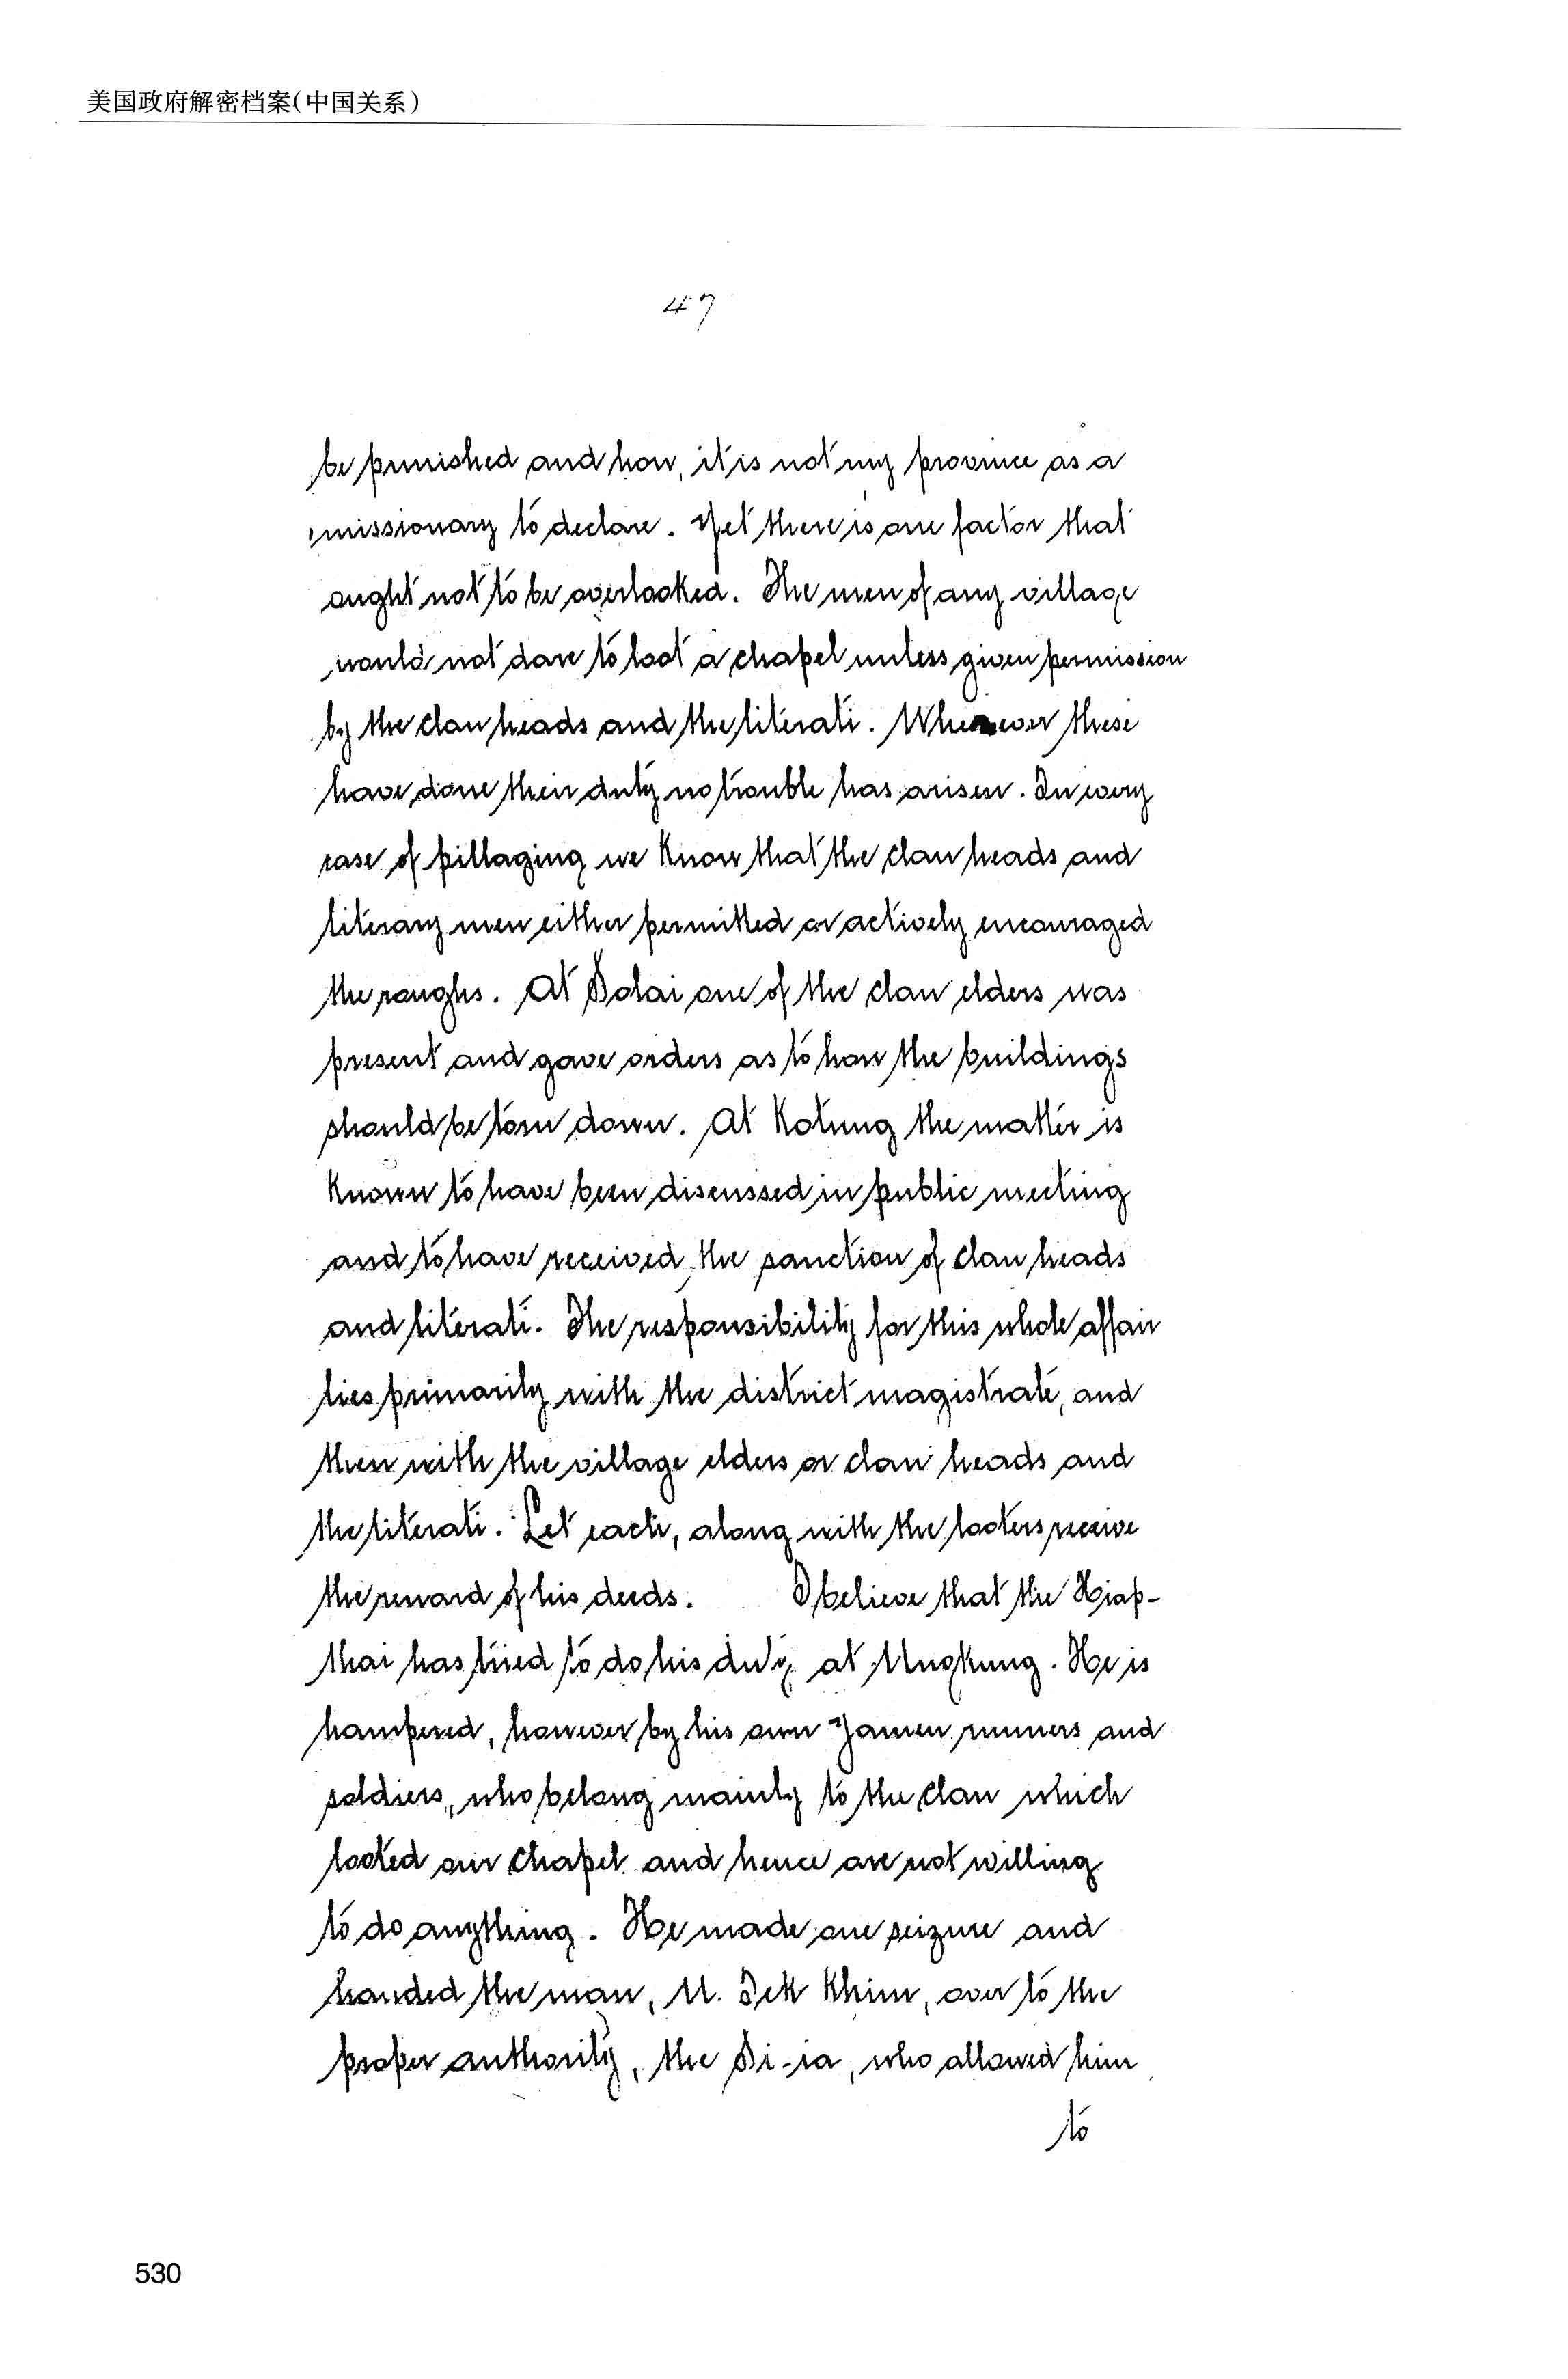 美国政府解密档案(中国关系)
47
be punished and how, it is not my province as a
missionary to declare. Yet there is one factor that
ought not to be overlooked. The men of any village
would not dare to loot a chapel unless given permission
by the clan heads and the literati. Whenever these
have done their duty no trouble has arisen. In every
case of pillaging we know that the clan heads and
literary men either permitted or actively encouraged
the roughs. At Solai one of the clan elders was
present and gave orders as to how the buildings
should be torn down. At Kotung the matter is
known to have been discussed in public meeting
and to have received the sanction of clan heads
and literati. The responsibility for this whole affair
lies primarily with the district magistrate, and
then with the village elders or clan heads and
the literati. Let each, along with the looters receive
the reward of his deeds. I believe that the Hiap-
thai has tried to do his duty at Ungkung. He is
hampered, however by his own Yamen runners and
soldiers, who belong mainly to the clan which
looted our chapel and hence are not willing
to do anything. He made one seizure and
handed the man, U. Sek Khim, over to the
proper authority, the Si-ia, who allowed him
to
530